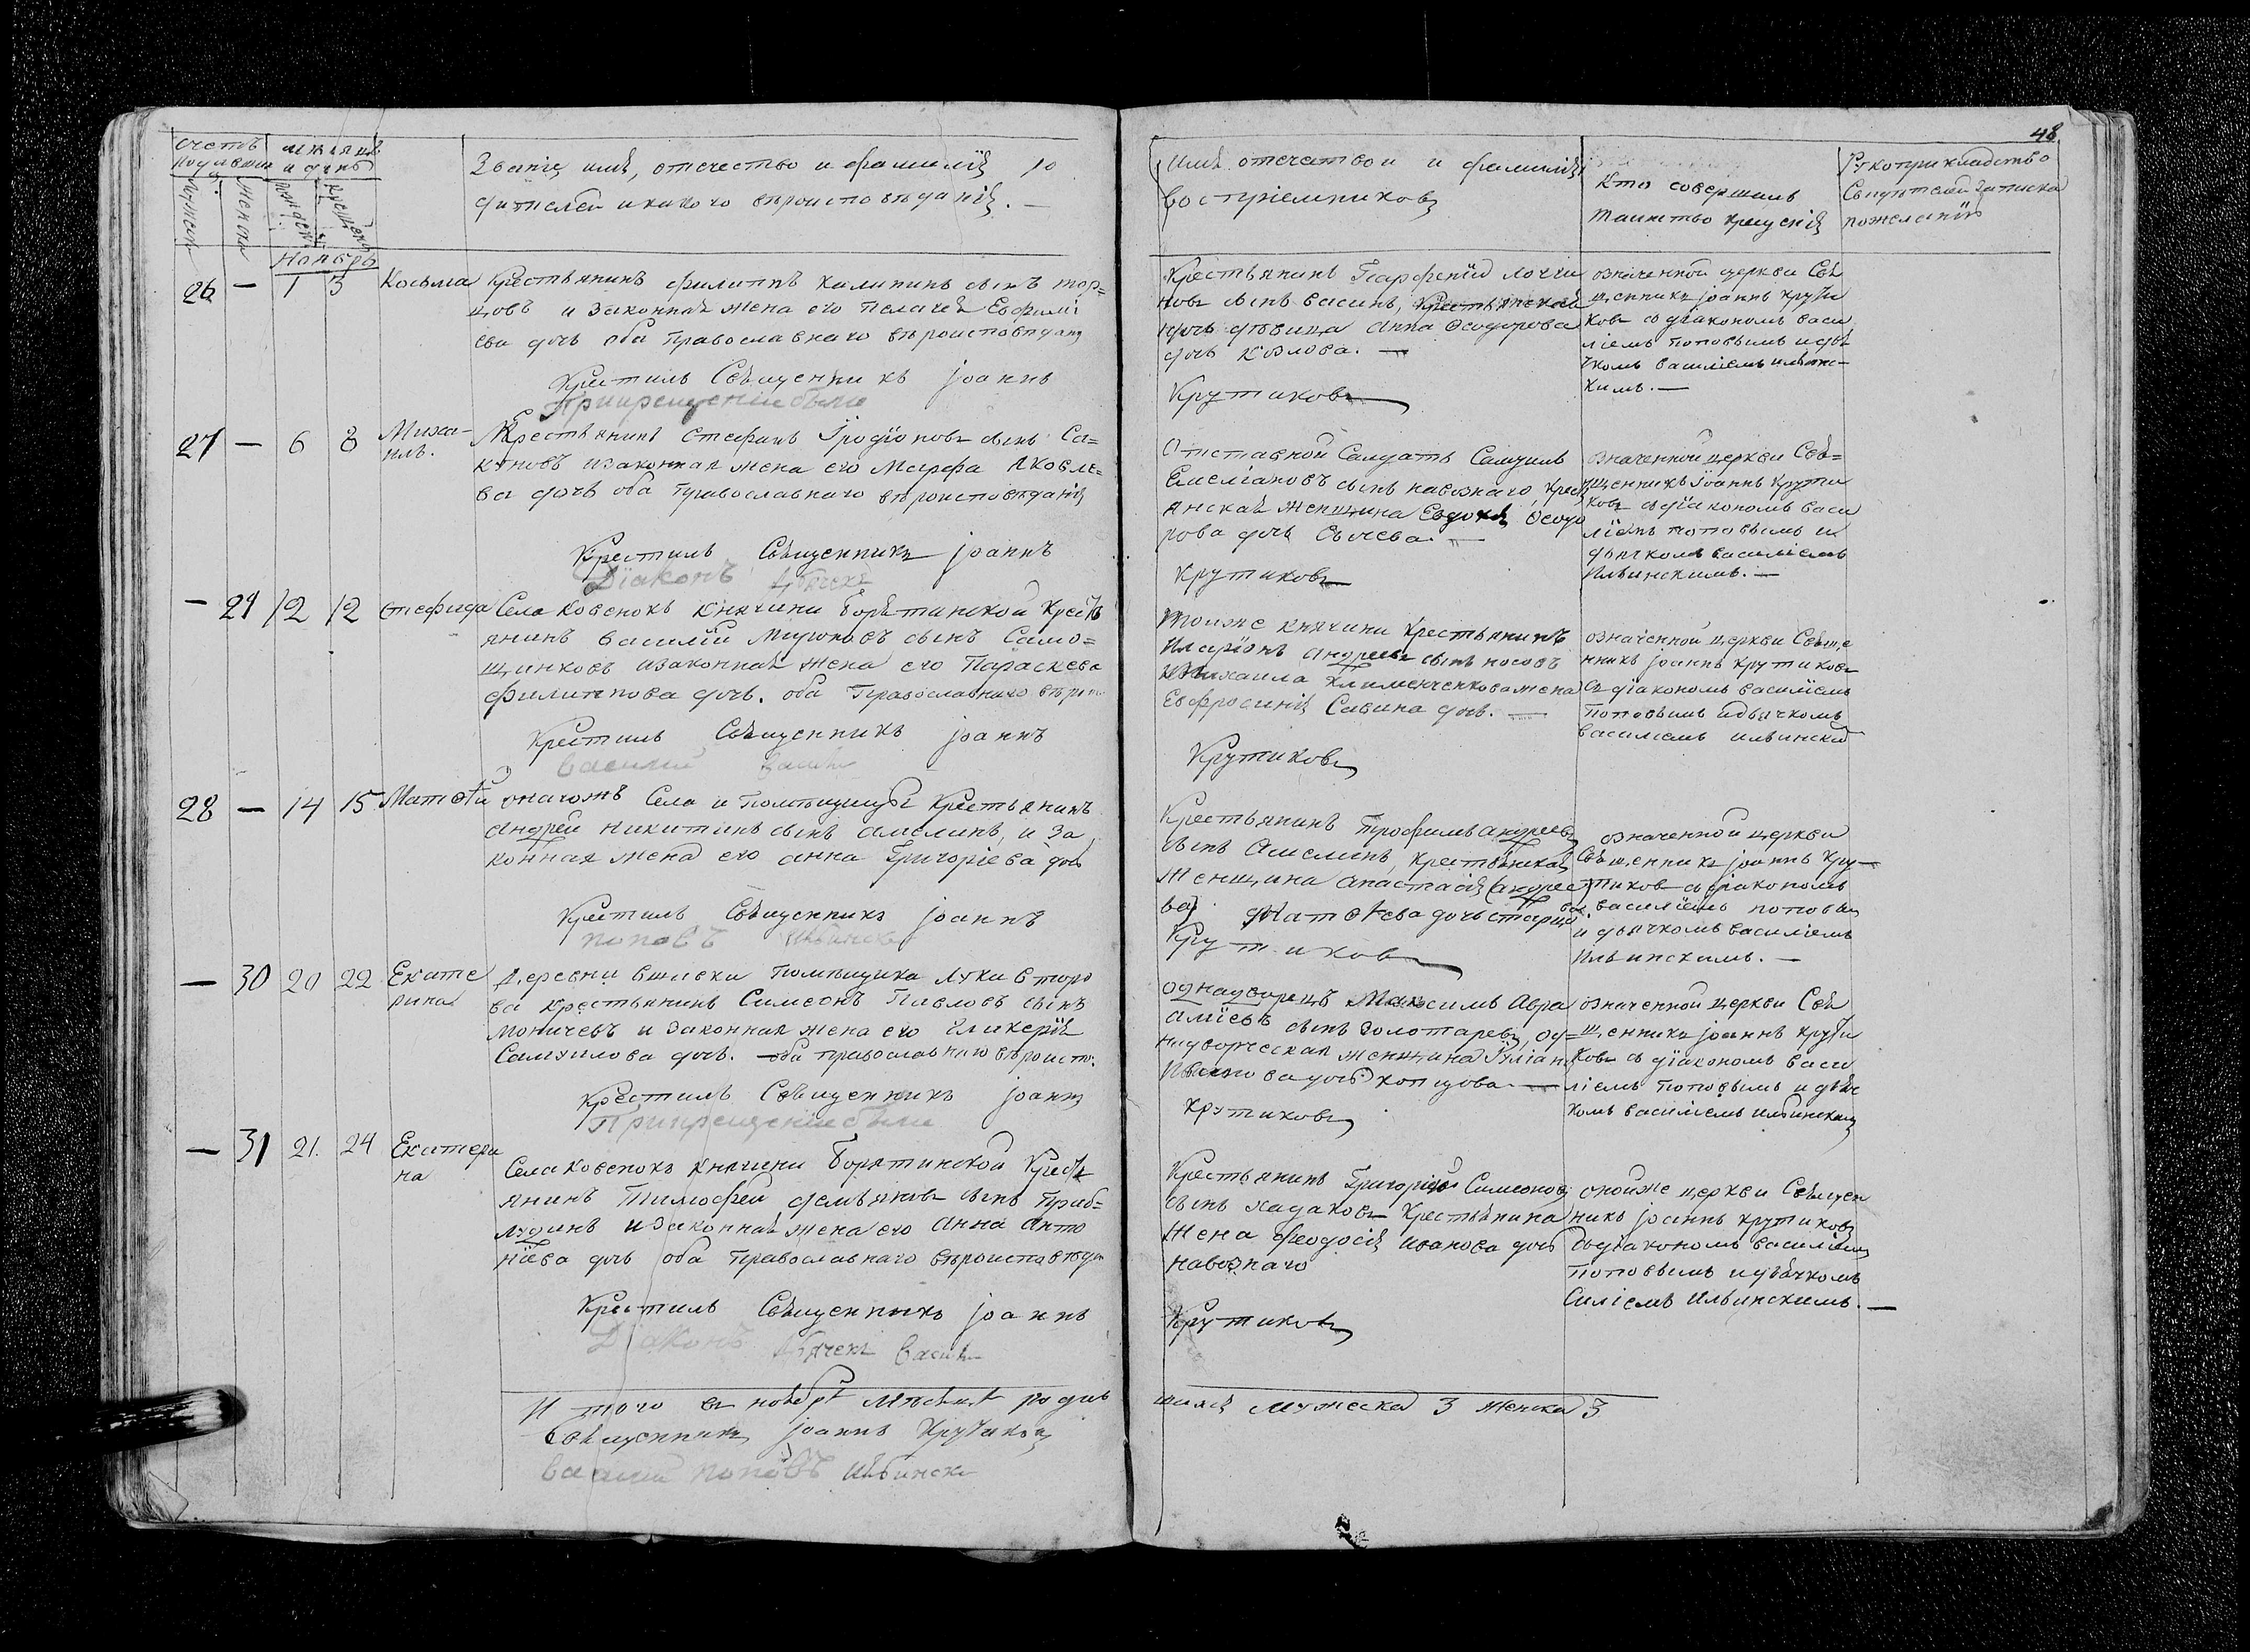 48
счетъ
месяцъ
и день
Мужеска
Женска
рожденія
крещенія
Ноябрь
Званіе имя, отечество и фамилія ро
дителей и какого вероисповеданія. —
имя отечество и фамилія
воспріемниковъ
Кто совершалъ
таинство крещенія
Рукоприкладство
Свидетелей записка
по желанію
26 — 1 3 Косьма
Крестьянинъ Филиппъ Калининъ сынъ
и Законная жена его Пелагея Ефимі
ева дочь оба Православнаго вероисповеданія
Крестилъ Священникъ Іоаннъ
При крещеніи были
Крестьянинъ Парфеній
новъ сынъ Васинъ, Крестьянской
дочь девица Анна Феодорова
дочь Козлова. —
Крутиковъ
означенной церкви Свя
щенникъ Іоаннъ Крути
ковъ съ діакономъ Васи
ліемъ Поповымъ и дья
чкомъ Василіемъ Ильинс-
кимъ. —
27 — 6 8 Миха-
илъ.
Крестьянинъ Стефанъ Іродіоновъ сынъ Са=
куновъ и законная жена его Марфа Яковле=
ва дочь оба Православнаго вероисповеданія
Крестилъ Священникъ Іоаннъ
Діаконъ Дьячекъ
Отставной Салдатъ Самуилъ
Емеліановъ сынъ Навознаго, крест
янская женщина Евдокія Феодо
рова дочь Сычева. —
Крутиковъ
означенной церкви Свя=
щенникъ Іоаннъ Крути
ковъ съ діакономъ Васи
ліемъ Поповымъ и
дьячкомъ Василіемъ
Ильинскимъ. —
— 29 12 12 Стефанида
Села Ковенокъ Княгини Борятинской крестъ
янинъ Василій Мироновъ сынъ Само=
щинковъ и законная жена его Параскева
Филиппова дочь. оба Православнаго
Крестилъ Священникъ Іоаннъ
Василий
Тоиже княгини крестьянинъ
Иларіонъ Андреевъ сынъ Носовъ
Михаила Клименченкова жена
Евфросинія Савина дочь. —
Крутиковъ
означенной церкви Свяще
нникъ Іоаннъ Крутиковъ
съ діакономъ Василіемъ
Поповымъ и дьячкомъ
Василіемъ Ильинским
28 — 14 15 Матфѣй
оногожъ Села и Помещицы Крестьянинъ
Андрей Никитинъ сынъ Амелинъ, и За
конная жена его Анна Григоріева дочь
Крестилъ Священникъ Іоаннъ
Поповъ Ильинской
Крестьянинъ Трофимъ Андреевъ
сынъ Амелинъ, крестьянская
женщина Анастасія (Андрее
ва) Матфеева дочь
Крутиковъ
означенной церкви
Священникъ Іоаннъ Кру—
тиковъ съ діакономъ
Василіемъ Поповым
и дьячкомъ Василіемъ
Ильинскимъ. —
— 30 20 22 Екате
рина
Деревни помещика Луки
ва крестьянинъ Симеонъ Павловъ сынъ
и Законная жена его Гликерія
Самуилова дочь. — оба православнаго вероиспо:
Крестилъ Священникъ Іоаннъ
При крещеніи были
однадворецъ Максимъ Авра
аміевъ сынъ Золотаревъ, од=
нодворческая женщина Іуліанія
Иванова дочь Копцова —
Крутиковъ
означенной церкви Свя
щенникъ Іоаннъ Крути
ковъ съ діакономъ Васи
ліемъ Поповымъ и дьяч
комъ Василіемъ Ильинским
— 31 21. 24 Екатери
на
Села Ковенокъ Княгини Борятинской Кресть
янинъ Тимофей Демьяновъ сынъ Приб=
лудинъ и Законная жена его Анна Анто
ніева дочь оба Православнаго вероисповеда
Крестилъ Священникъ Іоаннъ
Діаконъ Дьячекъ Васил
Крестьянинъ Григорій Симеоновъ
сынъ Хадаковъ Крестьянина
жена Феодосія Иванова дочь
Навознаго
Крутиковъ
онойже церкви Священ
никъ Іоаннъ Крутиковъ
съ діакономъ Василіемъ
Поповымъ и дьячкомъ
Силіемъ Ильинскимъ. —
Итого въ ноябре месяце родив
шихся Мужеска 3 Женска 3
Священникъ Іоаннъ Крутиковъ
Василий Поповъ Ильинской